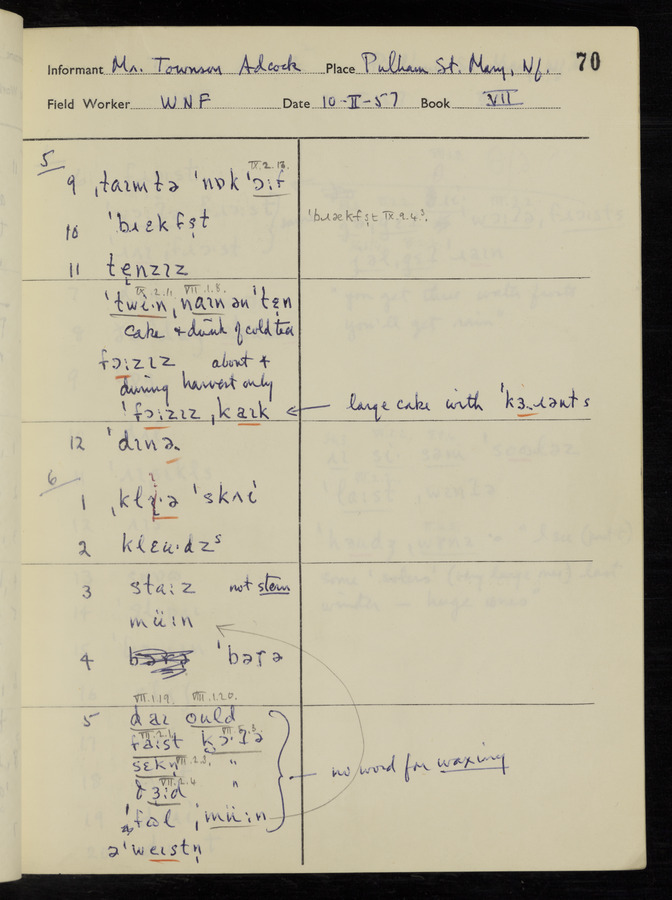 Informant Mr. Townson Adcock Place Pulham St. Mary, Nf. 70
Field Worker WNF Date 10-II-57 Book VII
5
IX.2.13.
9 ˌtaɪmtə ˈnɒkˈɔːf
10 ˈbɹɛkfs̩t ˈbɹækfs̩t IX.9.4³.
11 tɛnzɪz
IX.2.11. VII.1.8.
ˈtwiːn, naɪn ən ˈtɛn
cake & drink of cold tea
fɔːzɪz about 4
during harvest only
ˈfɔːzɪz ˌkaɪk ← large cake with ˈkɜ..ɹənts
12 ˈdɪnə.
6
1 ˌklɪə ˈskʌi
2 klɛʉ·dzˢ
3 staːz not stern
müːn
4 ˈbəɾə
VII.1.19. VIII.1.20.
5 daɪ ould
faɪst kɔːʔə
sɛkn̩ VII.2.3. "
θɜːd VII.2.4 "
ˈfəl ˌmüːn
no word for waxing
əˈweɪstn̩